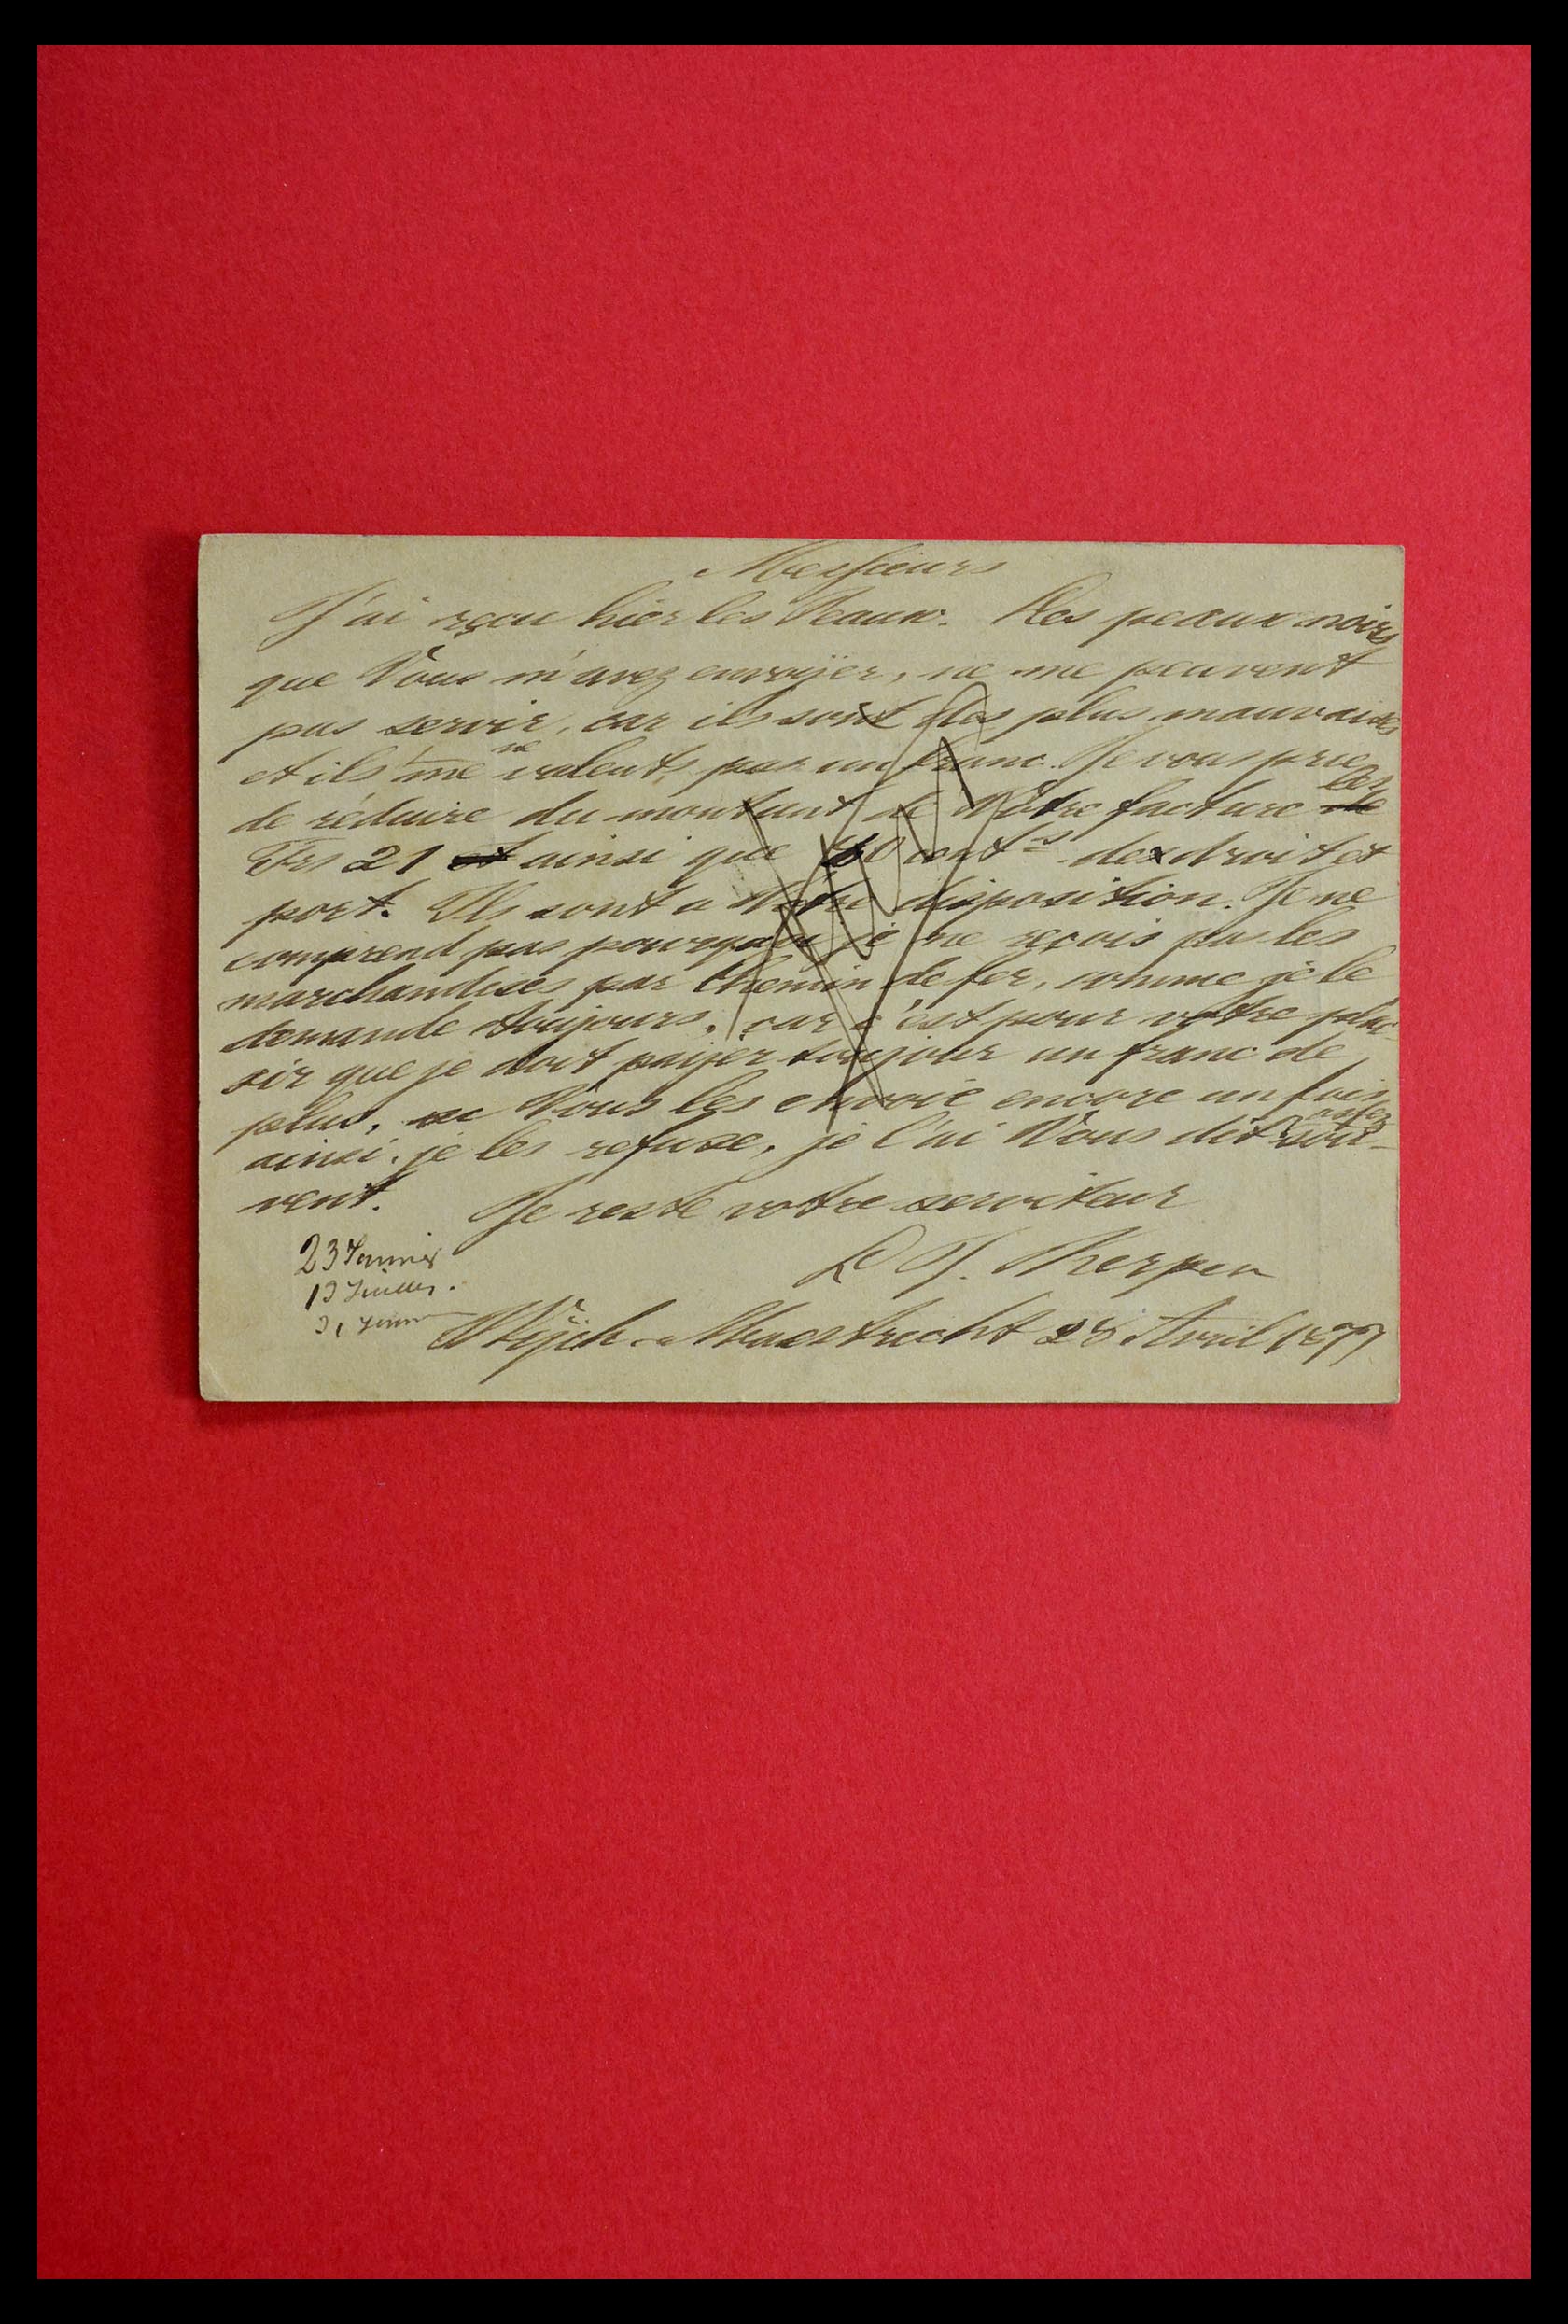 Messieurs
J'ai reçu hier les Veaux. Les peaux noirs
que Vous m'avez envoÿer, ne me peuvent
pas servir, car ils sont des plus mauvaises
et ils me ne valents pas un franc. Je vous prie
de réduire du montant de Votre facture les
Frs 21 ainsi que 40 cents de droit et
port. Ils sont a Votre disposition. Je ne
comprend pas pourquoi je ne reçois pas les
marchandises par Chemin de fer, comme je le
demande toujours, car c'est pour votre plai-
sir que je doit paijer toujour un franc de
plus, Vous les envoie encore un fois
ainsi, je les refuse, je l'ai Vous dit assez sou-
vent. Je reste votre serviteur
23 Janvier
13 Juillet.
Wÿck - Maestrecht 28 Avril 1877